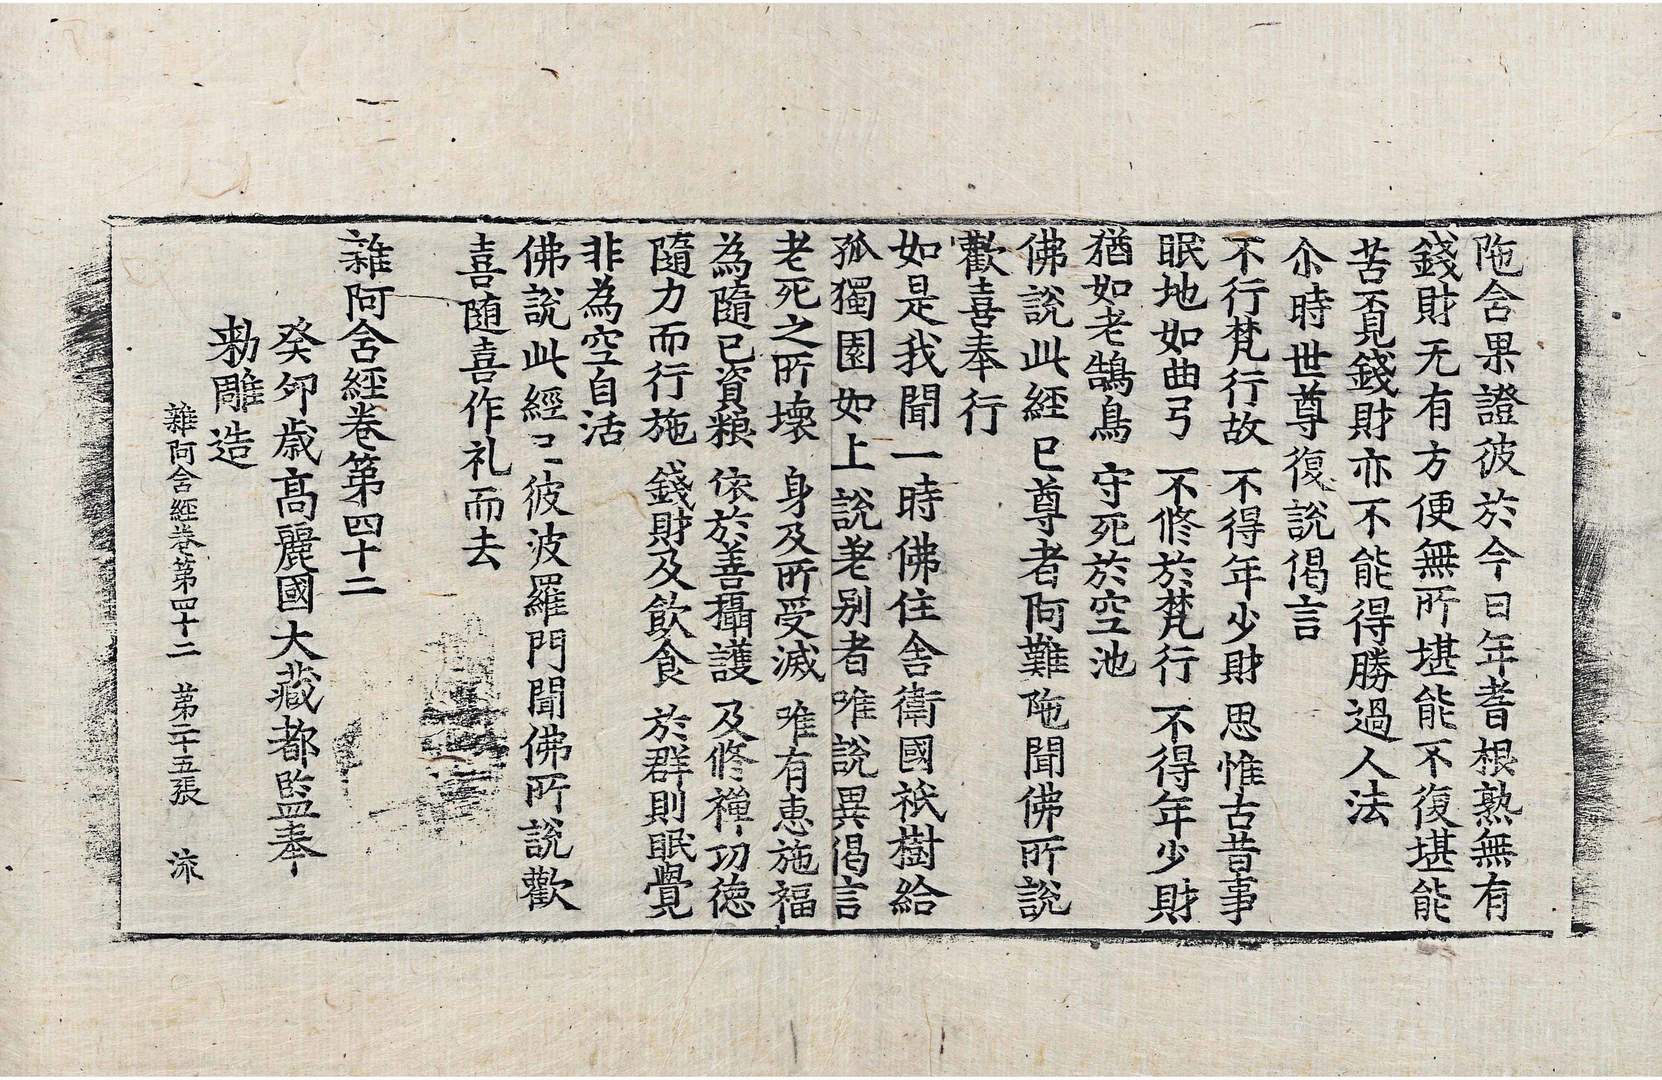 陁含果證彼於今日年耆根熟無有
錢財无有方便無所堪能不復堪能
苦覔錢財亦不能得勝過人法
尒時世尊復說偈言
不行梵行故　不得年少財　思惟古昔事
眠地如曲弓　不修於梵行　不得年少財
猶如老鵠鳥　守死於空池
佛說此經已尊者阿難陁聞佛所說
歡喜奉行
如是我聞一時佛住舍衛國祇樹給
孤獨園如上說差別者唯說異偈言
老死之所壞　身及所受滅　唯有惠施福
為隨己資粮　依於善攝護　及修禪功德
隨力而行施　錢財及飲食　於群則眠覺
非為空自活
佛說此經已彼波羅門聞佛所說歡
喜隨喜作礼而去
雜阿含經卷第四十二
癸卯歲高麗國大藏都監奉
勅雕造
雜阿含經卷第四十二　第二十五張　流